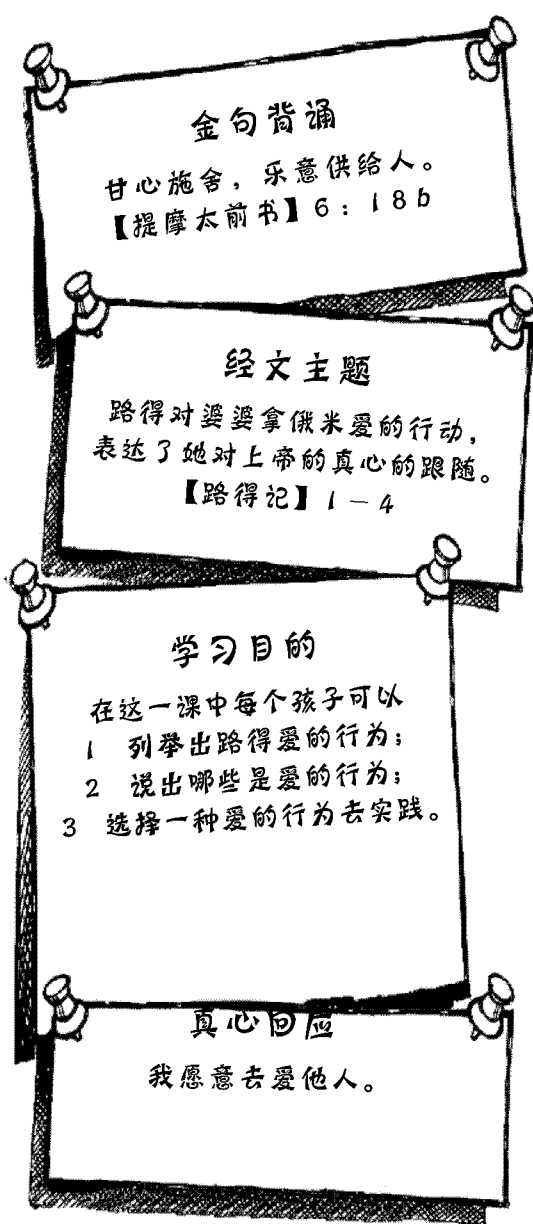 金句背诵
甘心施舍，乐意供给人。
【提摩太前书】6：18b
经文主题
路得对婆婆拿俄米爱的行动，
表达了她对上帝的真心的跟随。
【路得记】1－4
学习目的
在这一课中每个孩子可以
1 列举出路得爱的行为；
2 说出哪些是爱的行为；
3 选择一种爱的行为去实践。
真心回应
我愿意去爱他人。